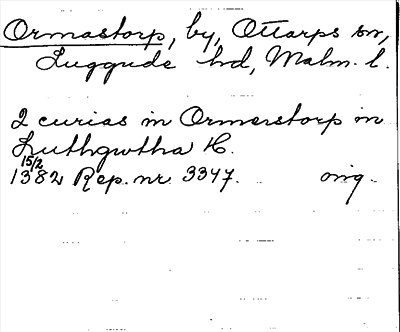 Ormastorp, by, Ottarps sn,
Luggude hd, Malm. l.
2 curias in Ormerstorp in
Luthgwtha H.
15/2
1382 Rep. nr. 3347. orig.